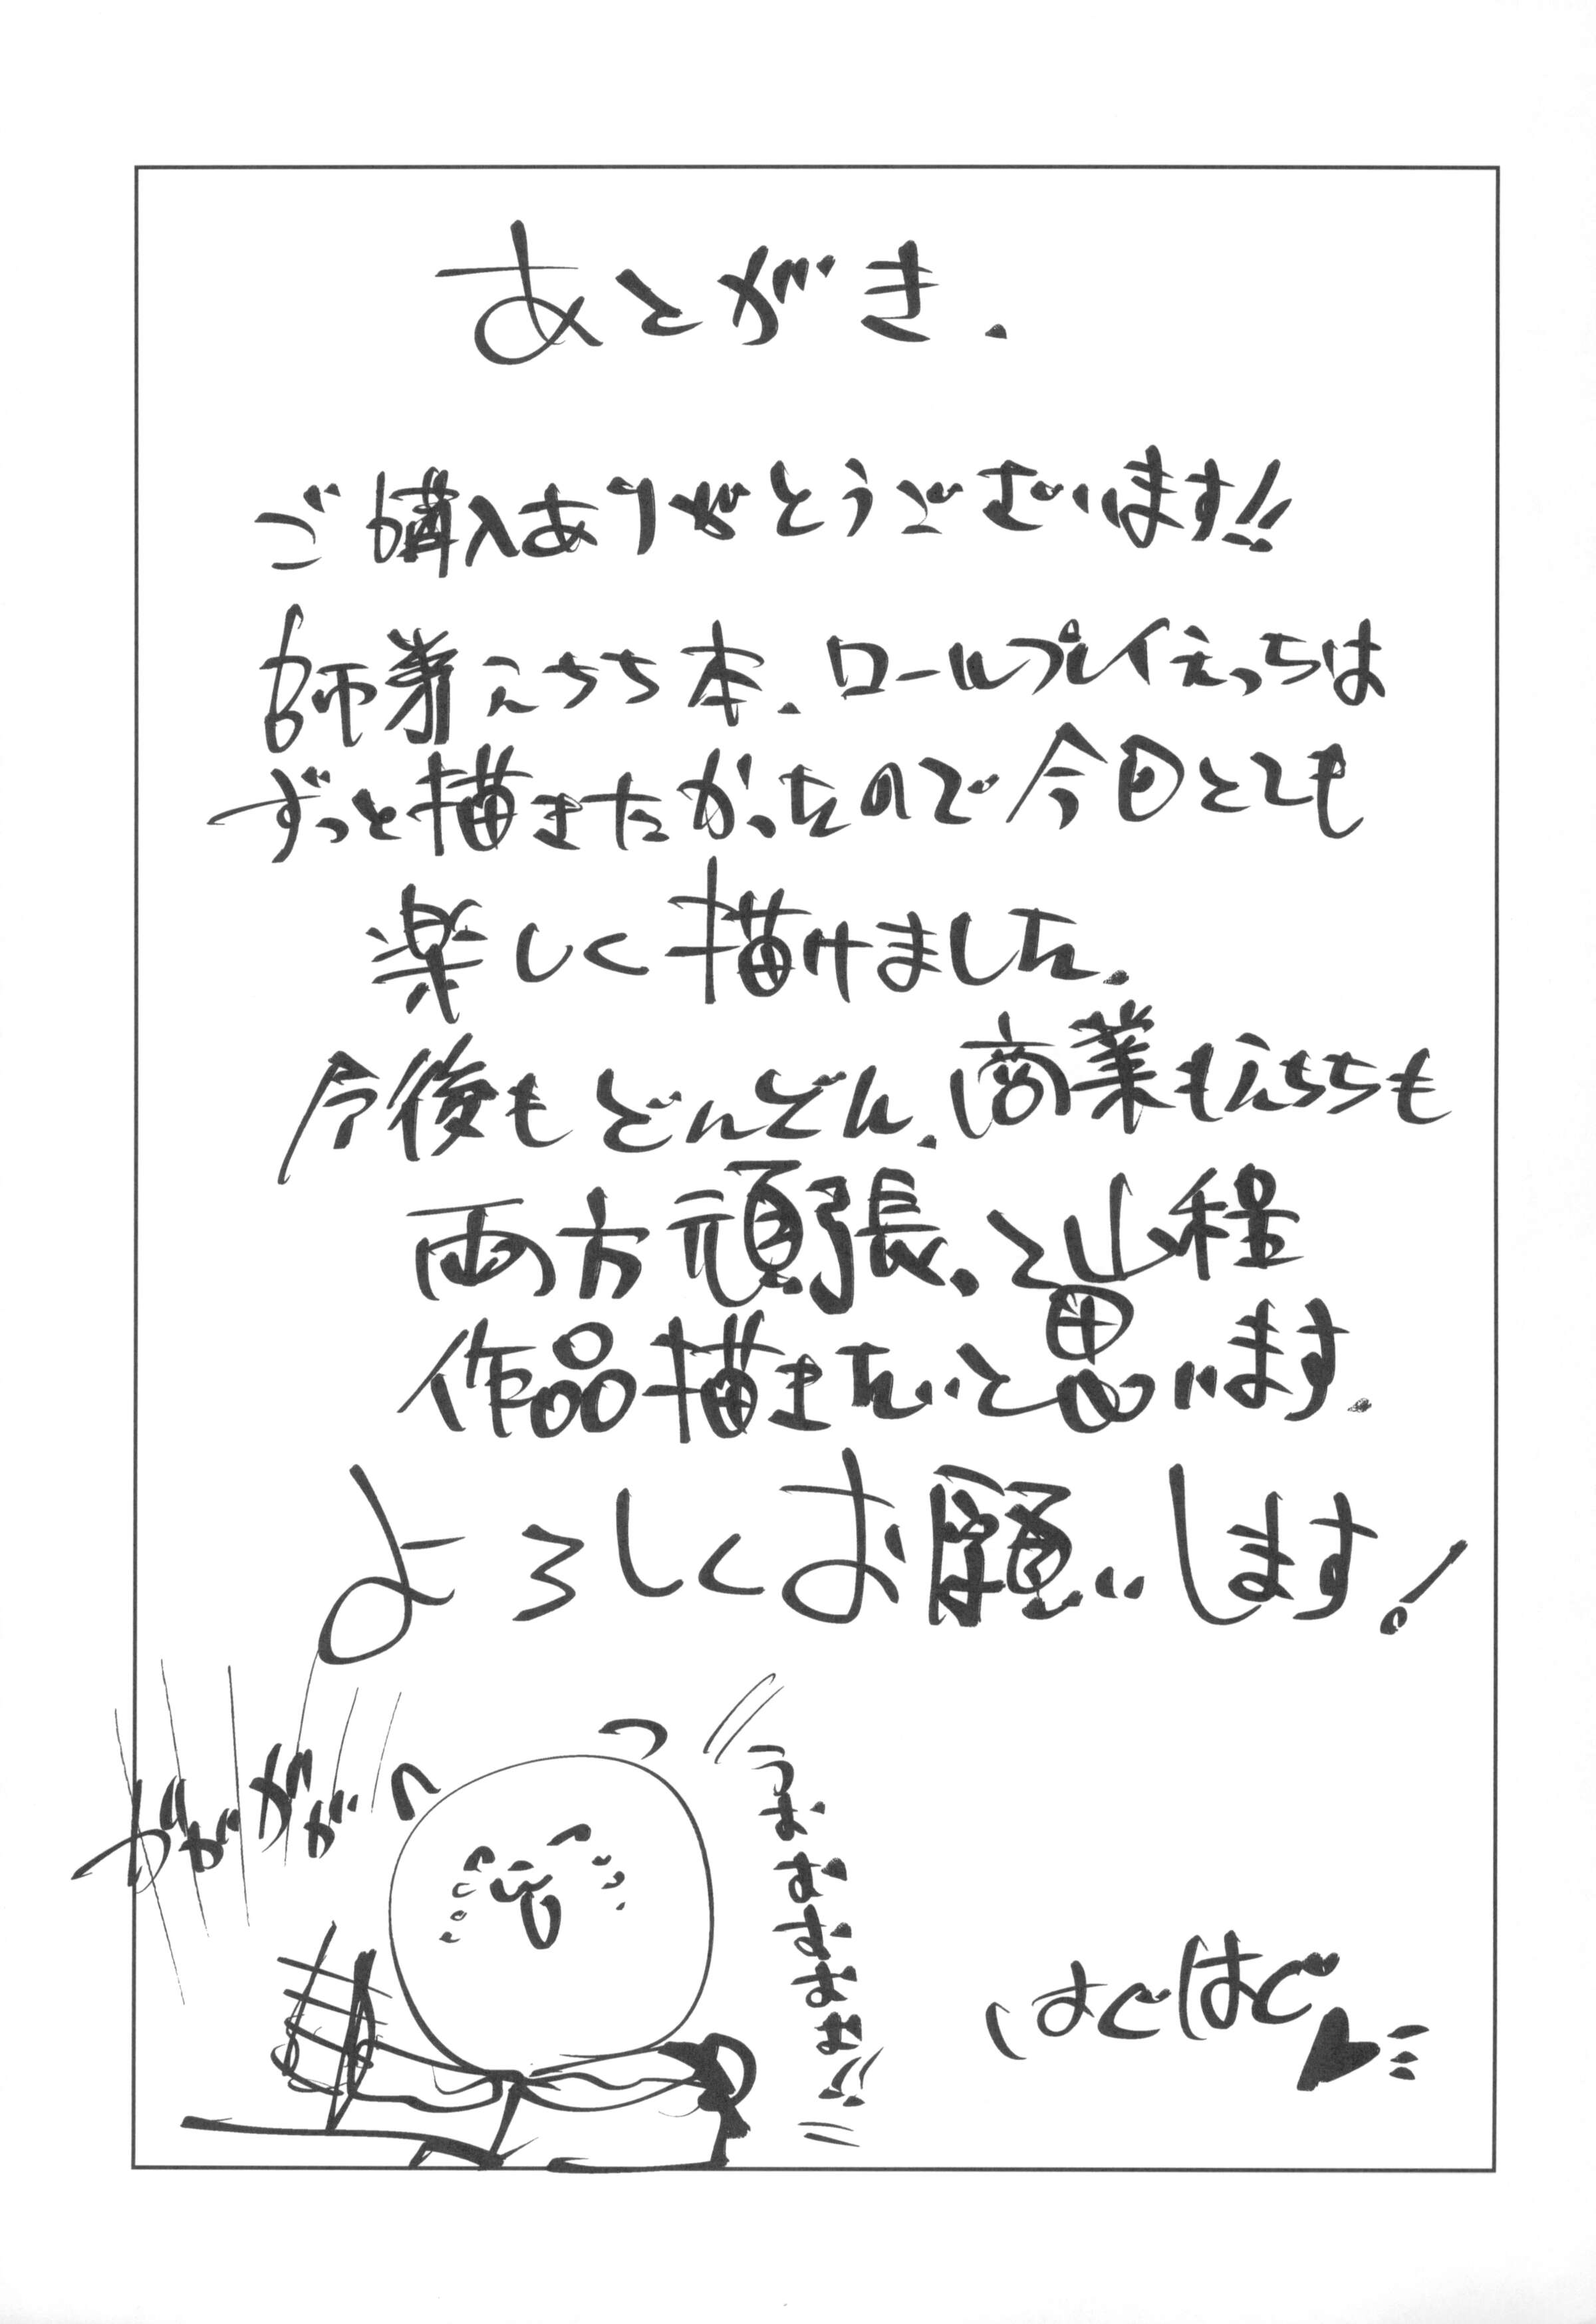 あとがき.
ご購入ありがとうございます!!
師弟えちち本.ロールプレイえっちは
ずっと描きたかったので今回とても
楽しく描けました.
今後もどんどん.商業もえちちも
両方頑張って沢山
作品描きたいと思います.
よろしくお願いします!
ががががが
うおおおおお!!
はぐはぐ